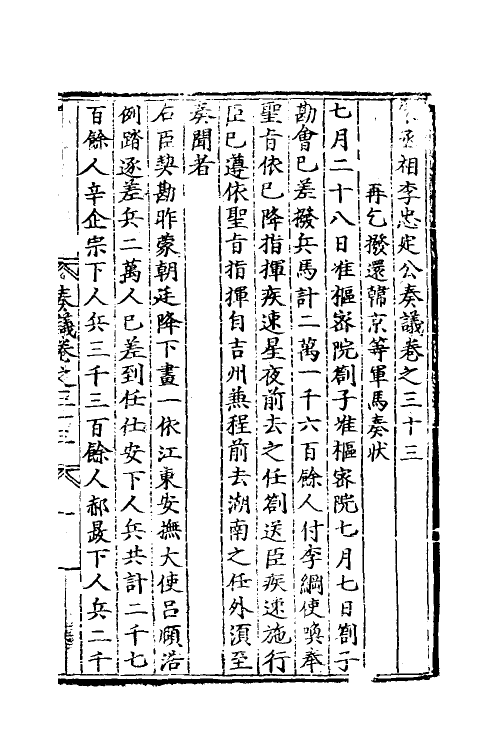 丞相李忠定公奏議卷之三十三
再乞撥還韓京等軍馬奏狀
七月二十八日准樞密院劄子准樞密院七月七日劄子
勘會已差撥兵馬計二萬一千六百餘人付李綱使喚奉
聖旨依已降指揮疾速星夜前去之任劄送臣疾速施行
臣已遵依聖旨指揮自吉州兼程前去湖南之任外須至
奏聞者
右臣契勘昨蒙朝廷降下畫一依江東安撫大使吕頤浩
例踏逐差兵二萬人已差到任仕安下人兵共計二千七
百餘人辛企宗下人兵三千三百餘人郝晸下人兵二千
奏議卷之三十三
一